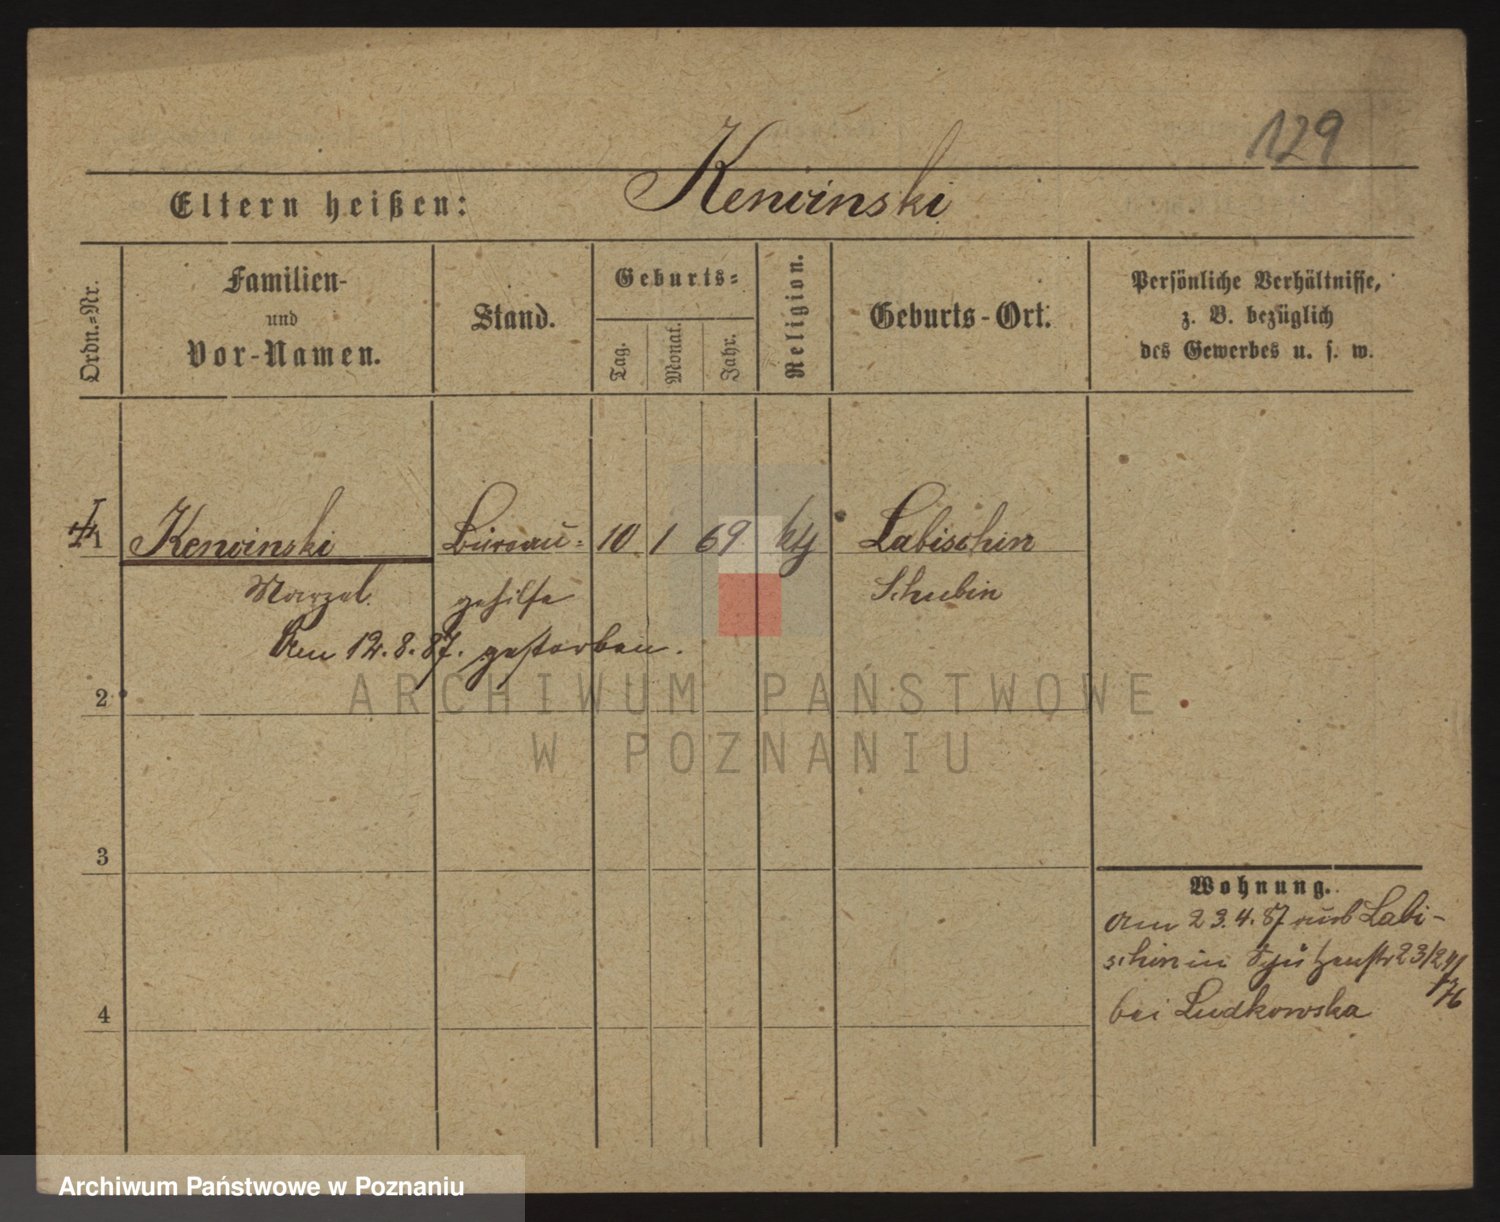 129
Eltern heißen: Kerwinski
Ordn.-Nr.
Familien-
und
Vor-Namen.
Stand.
Geburts-
Tag.
Monat.
Jahr.
Religion.
Geburts-Ort.
Persönliche Verhältnisse,
z. B. bezüglich
des Gewerbes u. s. w.
1 Kerwinski Büreau- 10 1 69 Labischin
Marzel gehilfe Schubin
Am 12.8.87. gestorben.
ARCHIWUM PAŃSTWOWE
W POZNANIU
2
3
4
Wohnung.
Am 23.4.87 aus Labi-
schin in Schützenstr 23/24
bei Ludkowska
Archiwum Państwowe w Poznaniu